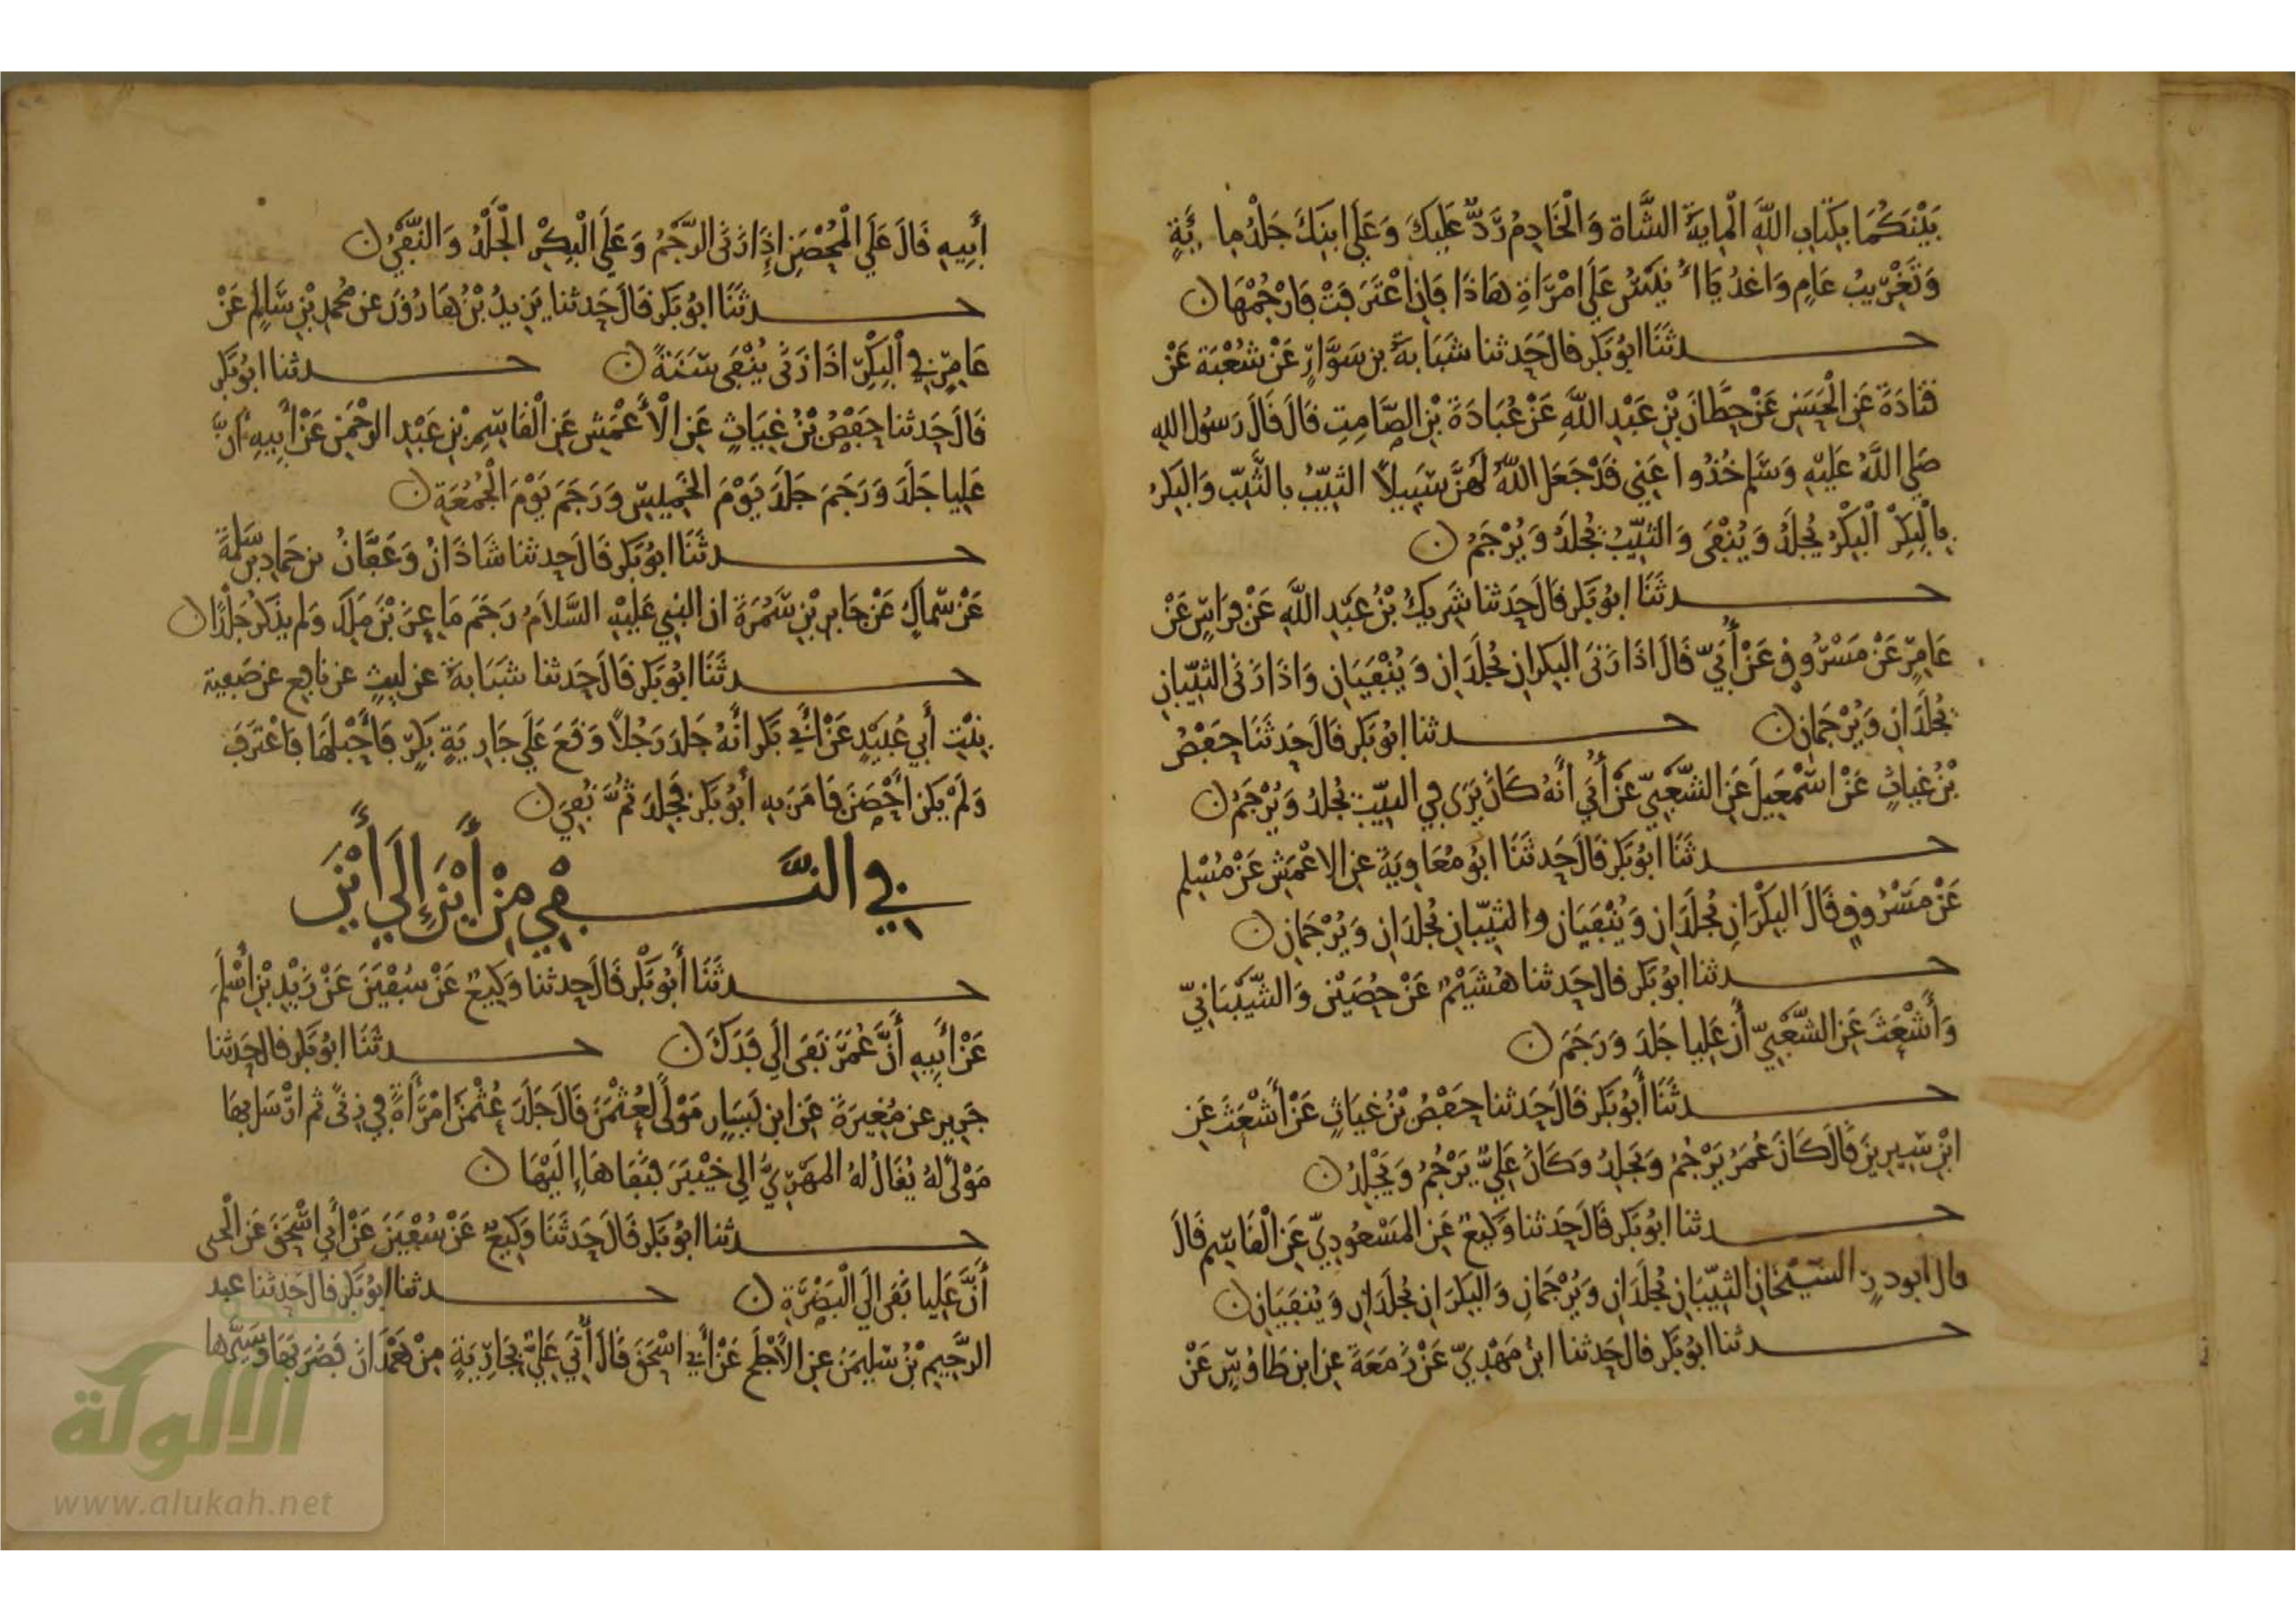 بَيْنَكُمَا بِكِتَابِ اللَّهِ الْمِايَةُ الشَّاة وَالْخَادِمُ رَدٌّ عَلَيْكَ وَعَلَى ابنِكَ جَلْدُ مِايَةٍ
وَتَغْرِيبُ عَامٍ وَاغْدُ يَا أُنَيْسُ عَلَى امْرَاةِ هَاذَا فَإِنِ اعْتَرَفَتْ فَارْجُمْهَا
حدثَنَا ابُو بَكر قال حَدثنا شَبَابَةُ بن سَوَّارٍ عَنْ شُعْبَة عَنْ
قتَادَةَ عَنِ الْحَسَنِ عَنْ حِطَّانَ بْنِ عَبْدِ اللَّهِ عَنْ عُبَادَةَ بْنِ الصَّامِتِ قَالَ قَالَ رَسُول الله
صَلى اللَّهُ عَلَيْهِ وَسَلم خُذُوا عَنِي قَدْ جَعَل اللَّهُ لَهُنَّ سَبِيلاً الثيِّبُ بالثَّيِّب وَالبكرُ
بِالْبِكْرِ الْبِكْرُ يُجلَدُ وَيُنْفَى وَالثيِّبُ يُجلَدُ وَيُرْجَمُ
حدثَنَا ابُو بَكر قَالَ حَدَثنا شَرِيكُ بْنُ عَبْدِ اللَّهِ عَنْ فِرَاسٍ عَنْ
عَامِرٍ عَنْ مَسْرُوقٍ عَنْ أُبَيٍّ قَالَ اذَا زَنَى البكران يُجْلَدَانِ وَيُنْفَيَانِ وَاذَا زَنَى الثيِّبَانِ
يُجْلَدَانِ وَيُرْجَمَانِ حدثنا ابُو بَكر قَالَ حَدثَنَا حَفْصُ
بْنُ غِيَاثٍ عَنْ اسْمعِيلَ عَنِ الشَّعْبِيِّ عَنْ أُبَي أَنَّهُ كَانَ يَرَى في الثيِّبِ يُجلدُ وَيُرْجَمُ
حدثَنَا ابُو بَكر قَالَ حَدثَنَا ابُو مُعَاوِيَةَ عن الاعْمَشِ عَنْ مُسْلِم
عَنْ مَسْرُوقٍ قَالَ البِكْرَانِ يُجْلَدَانِ وَيُنْفَيَانِ والثيِّبَانِ يُجْلدَانِ وَيُرْجَمَانِ
حدثنا ابُو بَكر قال حَدثنا هُشَيْمٌ عَنْ حُصَيْنٍ وَالشَّيْبَانِيِّ
وَأَشْعَثَ عَنِ الشَّعْبِيِّ أَن عَلِيا جَلَدَ وَرَجَمَ
حدثَنَا أَبُو بَكر قَالَ حَدثنا حَفْصُ بْنُ غِيَاثٍ عَنْ أَشْعَثَ عَنِ
ابْنِ سِيرِينَ قَالَ كَانَ عُمَرُ يَرْجُمُ وَيَجْلِدُ وَكَانَ عَلِيٌّ يَرْجُمُ وَيَجْلِدُ
حدثنا ابُو بَكر قَالَ حَدثنا وَكِيعٌ عَنِ المَسْعُودِيِّ عَنِ الْقَاسِمِ قَالَ
قال ابو ذرٍ الشيْخَانِ الثيِّبَانِ يُجْلَدَانِ وَيُرْجَمَانِ وَالبكرَانِ يُجْلَدَانِ وَيُنْفَيَانِ
حدثنا ابُو بَكر قال حَدثنا ابنُ مَهْدِيٍّ عَنْ زَمَعَةَ عن ابن طَاوُسٍ عَنْ
أَبِيهِ قَالَ عَلَى الْمُحْصَنِ إِذَا زَنَى الرَّجْمُ وَعَلَى الْبِكْرِ الْجَلْدُ وَالنَّفْيُ
حدثَنَا ابُو بَكر قَالَ حَدثنا يَزِيدُ بْنُ هَارُونَ عن مُحمدِ بْنِ سَالِمٍ عَنْ
عَامِرٍ فِي الْبِكْرِ اذَا زَنَى يُنْفَى سَنَةً حدثنا ابُو بَكر
قَالَ حَدثنا حَفْصُ بْنُ غِيَاثٍ عَنِ الْأَعْمَشِ عَنِ الْقَاسِمِ بْنِ عَبْدِ الرحْمَنِ عَنْ أَبِيهِ أَنَّ
عَلِيا جَلَدَ وَرَجَمَ جَلَدَ يَوْمَ الخَمِيسِ وَرَجَمَ يَوْمَ الْجُمُعَةِ
حدثَنَا ابُو بَكر قَالَ حدثنا شَاذَانُ وَعَفَّانُ بن حَمادِ بْنِ سَلمَةَ
عَنْ سِمَاكٍ عَنْ جَابِرِ بْنِ سَمُرَةَ ان النبي عَلَيْهِ السَّلاَمُ رَجَمَ مَاعِزَ بْنَ مَلِكٍ وَلم يذكُر جَلْدًا
حدثَنَا ابُو بَكر قَالَ حَدثنا شَبَابَةُ عن ليثٍ عن نافِع عن صَفِية
بِنْتِ أَبي عُبَيْدٍ عَنْ أَبي بَكر أَنَّهُ جَلدَ رَجُلاً وَقَعَ عَلَى جَارِيَةٍ بِكْرٍ فَأَحْبَلَهَا فَاعْتَرَفَ
وَلَمْ يَكن أُحْصِنَ فَامَرَ بِهِ أَبُو بَكر فَجُلِدَ ثُمَّ نُفِيَ
في النَّفْي مِنْ أَيْنَ إِلَى أَيْنَ
حدثَنَا أَبُو بَكْر قَالَ حدثنا وَكِيعٌ عَنْ سُفْيَنَ عَنْ زَيْدِ بْنِ أَسْلَمَ
عَنْ أَبِيهِ أَنَّ عُمَرَ نَفَى إِلَى فَدَكَ حدثَنَا ابُو بَكر قال حَدثنا
جَرِير عن مُغِيرَةَ عَنِ ابن يَسَارٍ مَوْلًى لعُثْمَنَ قَالَ جَلَدَ عُثْمَنُ امْرَأَةً فِي زِنًى ثم ارْسَل بهَا
مَوْلًى لَهُ يُقَالُ لهُ المَهْرِيُّ إِلى خَيْبَرَ فنَفَاهَا إِلَيْهَا
حدثنا ابُو بَكر قَالَ حَدثَنَا وَكِيعٌ عَنْ سُفْيَنَ عَنْ أَبي اسْحَقَ عَنِ الْحي
أَنَّ عَلِيا نَفَى إِلَى الْبَصْرَةِ حدثنا ابُو بَكر قال حَدثنا عبد
الرَّحِيمِ بْنُ سليمَنَ عن الأَجْلَحِ عَنْ أَبي اسْحَقَ قَالَ أُتِيَ عَلِيٌّ بِجَارِيَةٍ مِنْ هَمْدَانَ فَضَرَبَهَا وَسَيَّرَها
شبكة
الألوكة
www.alukah.net